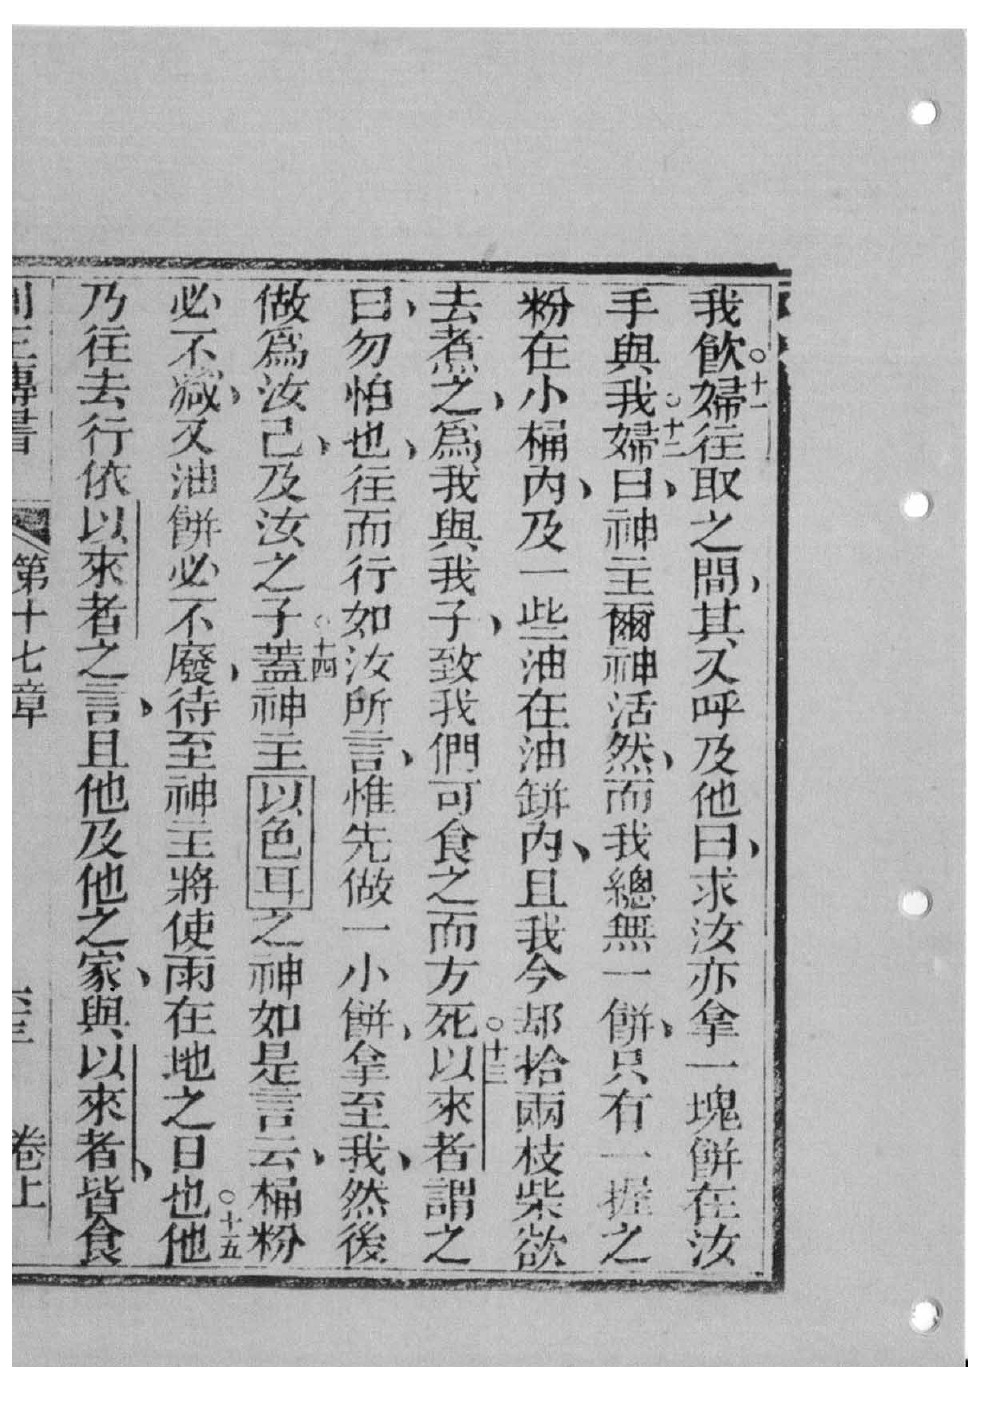 我飲。十一婦往取之間、其又呼及他曰、求汝亦拿一塊餅在汝
手與我。十二婦曰、神主爾神活然、而我總無一餅、只有一握之
粉在小桶內、及一些油在油缾內、且我今却拾兩枝柴欲
去煮之、爲我與我子、致我們可食之而方死。十三以來者謂之
曰、勿怕也、往而行如汝所言、惟先做一小餅、拿至我、然後
做爲汝己、及汝之子。十四蓋神主以色耳之神如是言云、桶粉
必不减、又油餅必不廢、待至神主將使雨在地之日也。十五他
乃往去行依以來者之言、且他及他之家、與以來者、皆食
列王傳書 第十七章 卷上